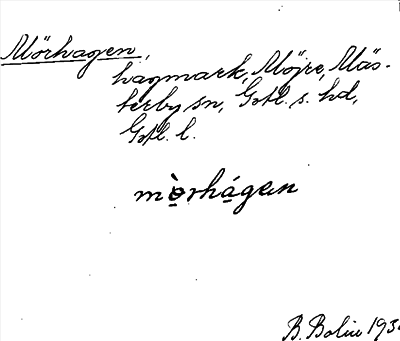 Mörhagen,
hagmark, Möjre, Mäs-
terby sn, Gotl. s. hd,
Gotl. l.
mo̱̊̀rhá̱gen
B. Bolin 193